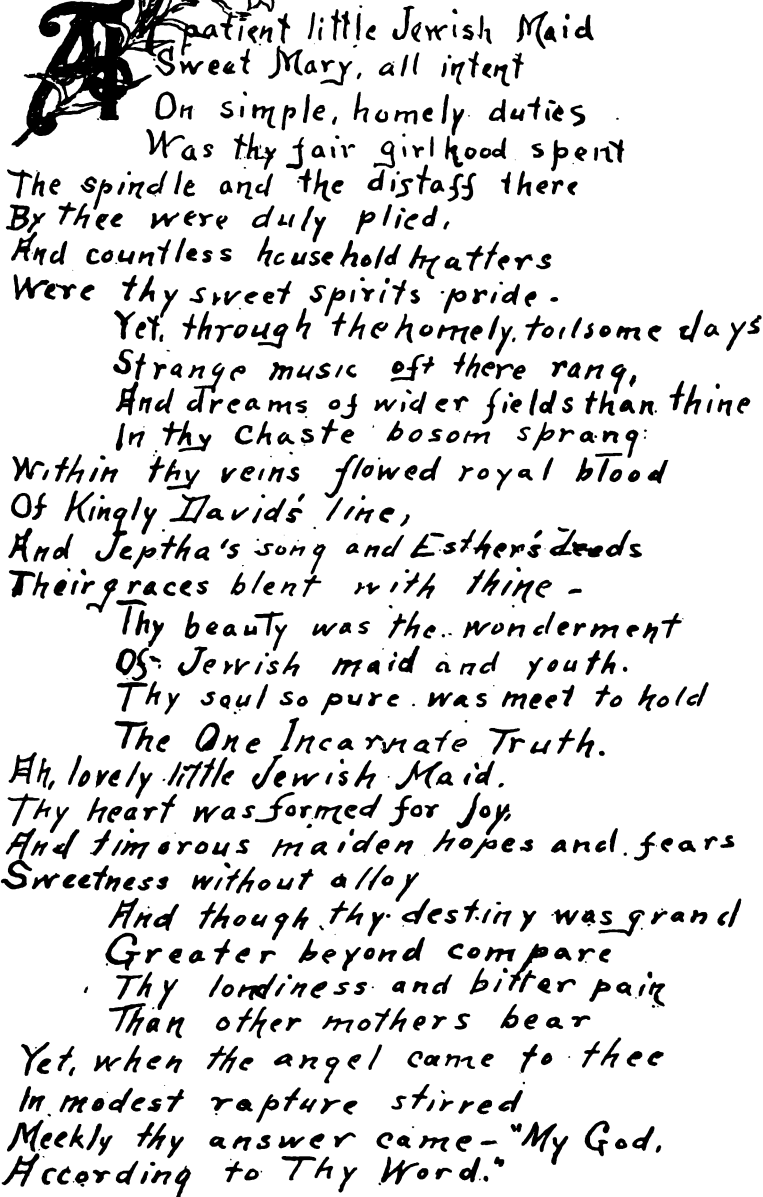 A patient little Jewish Maid
Sweet Mary, all intent
On simple, homely duties
Was thy fair girlhood spent
The spindle and the distaff there
By thee were duly plied,
And countless household matters
Were thy sweet spirits pride -
Yet, through the homely, toilsome days
Strange music oft there rang,
And dreams of wider fields than thine
In thy chaste bosom sprang:
Within thy veins flowed royal blood
Of Kingly David's line,
And Jeptha's song and Esther's deeds
Their graces blent with thine -
Thy beauty was the wonderment
Of Jewish maid and youth.
Thy soul so pure was meet to hold
The One Incarnate Truth.
Ah, lovely little Jewish Maid.
Thy heart was formed for joy,
And timorous maiden hopes and fears
Sweetness without alloy
And though thy destiny was grand
Greater beyond compare
Thy londiness and bitter pain
Than other mothers bear
Yet, when the angel came to thee
In modest rapture stirred
Meekly thy answer came - "My God,
According to Thy Word."